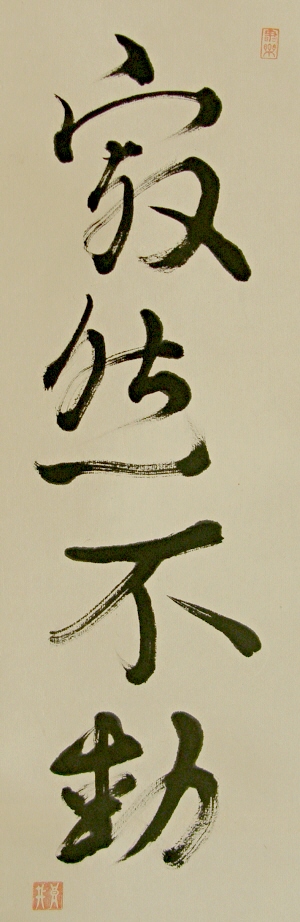 寂然不動